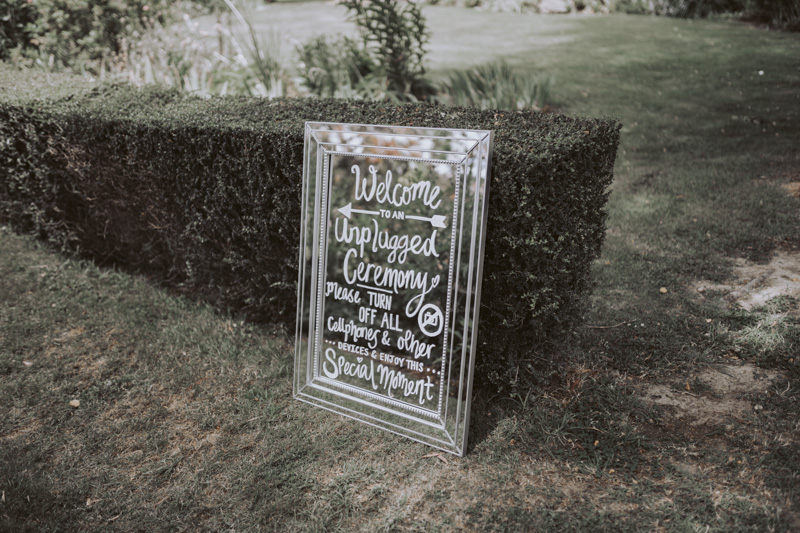 Welcome
TO AN
Unplugged
Ceremony
Please TURN
OFF ALL
Cellphones & other
... DEVICES & ENJOY THIS ...
Special Moment